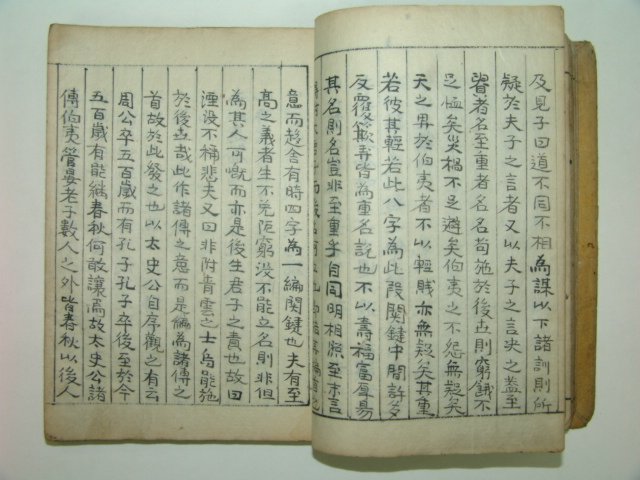 及見子曰道不同不相為謀以下諸訓則所
疑於夫子之言者又以夫子之言決之盖至
者名至重者名名苟施於後世則窮餓不
足恤矣災禍不足避矣伯夷之不怨無疑矣
天之畀於伯夷者不以輕賤亦無疑矣其重
若彼其輕若此八字為此段関鍵中間許多
反覆歎弄皆為重名說也不以壽福富厚易
其名則名豈非至重乎自同明相照至末言
意而趍舍有時四字為一編関鍵也夫有至
高之義者生不免阨窮沒不能立名則非但
為其人可慨而亦是後生君子之責也故曰
湮沒不稱悲夫又曰非附青雲之士烏能施
於後世哉此作諸傳之意而是編為諸傳之
首故於此發之也以太史公自序觀之有云
周公卒五百歲而有孔子孔子卒後至於今
五百歲有能繼春秋何敢讓焉故太史公諸
傳伯夷管晏老子數人之外皆春秋以後人